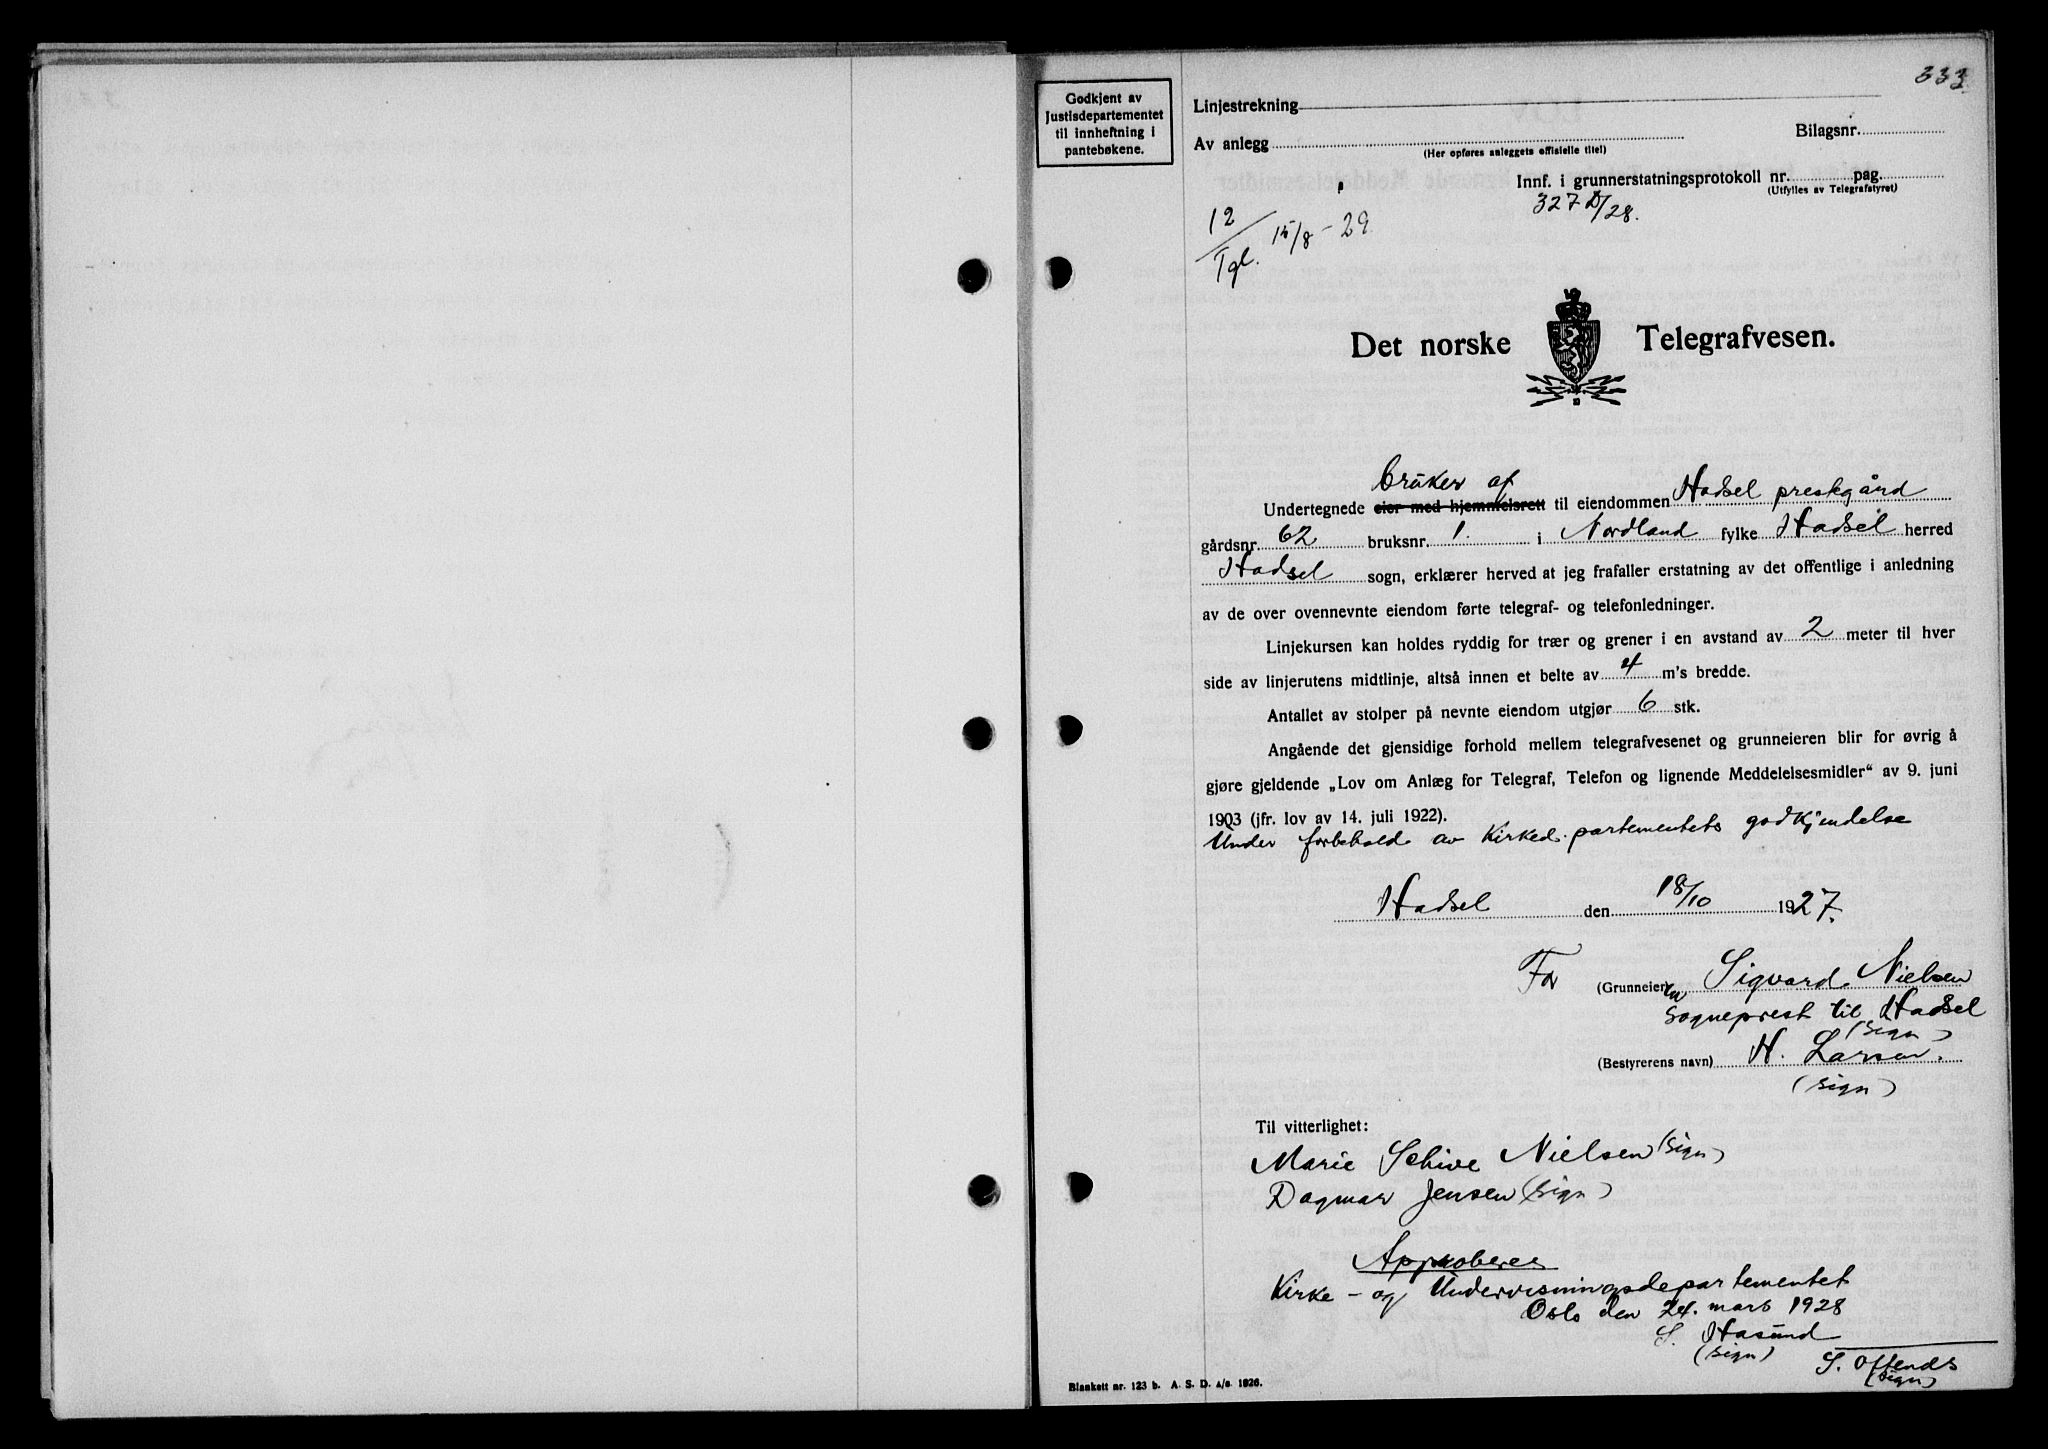 333
Godkjent av
Justisdepartementet
til innheftning i
pantebøkene.
Linjestrekning
Av anlegg
(Her opføres anleggets offisielle titel)
Bilagsnr.
Innf. i grunnerstatningsprotokoll nr. pag.
(Utfylles av Telegrafstyret)
327 /28.
12 / Tgl. 15/8 - 29
Det norske Telegrafvesen.
bruker af
Undertegnede eier med hjemmelsrett til eiendommen Hadsel prestegård
gårdsnr. 62 bruksnr. 1. i Nordland fylke Hadsel herred
Hadsel sogn, erklærer herved at jeg frafaller erstatning av det offentlige i anledning
av de over ovennevnte eiendom førte telegraf- og telefonledninger.
Linjekursen kan holdes ryddig for trær og grener i en avstand av 2 meter til hver
side av linjerutens midtlinje, altså innen et belte av 4 m's bredde.
Antallet av stolper på nevnte eiendom utgjør 6 stk.
Angående det gjensidige forhold mellem telegrafvesenet og grunneieren blir for øvrig å
gjøre gjeldende „Lov om Anlæg for Telegraf, Telefon og lignende Meddelelsesmidler“ av 9. juni
1903 (jfr. lov av 14. juli 1922).
Under forbehold av Kirkedepartementets godkjendelse
Hadsel den 18/10 1927.
For (Grunneier) Sigvard Nielsen
Sogneprest til Hadsel
(sign)
(Bestyrerens navn) H. Larsen.
(sign)
Til vitterlighet:
Marie Schive Nielsen (sign)
Dagmar Jensen (sign)
Approberes
Kirke- og Undervisningsdepartementet
Oslo den 24. mars 1928
S. Hasund
(sign)
S. Oftends
(sign)
Blankett nr. 123 b. A. S. D. A/s. 1926.